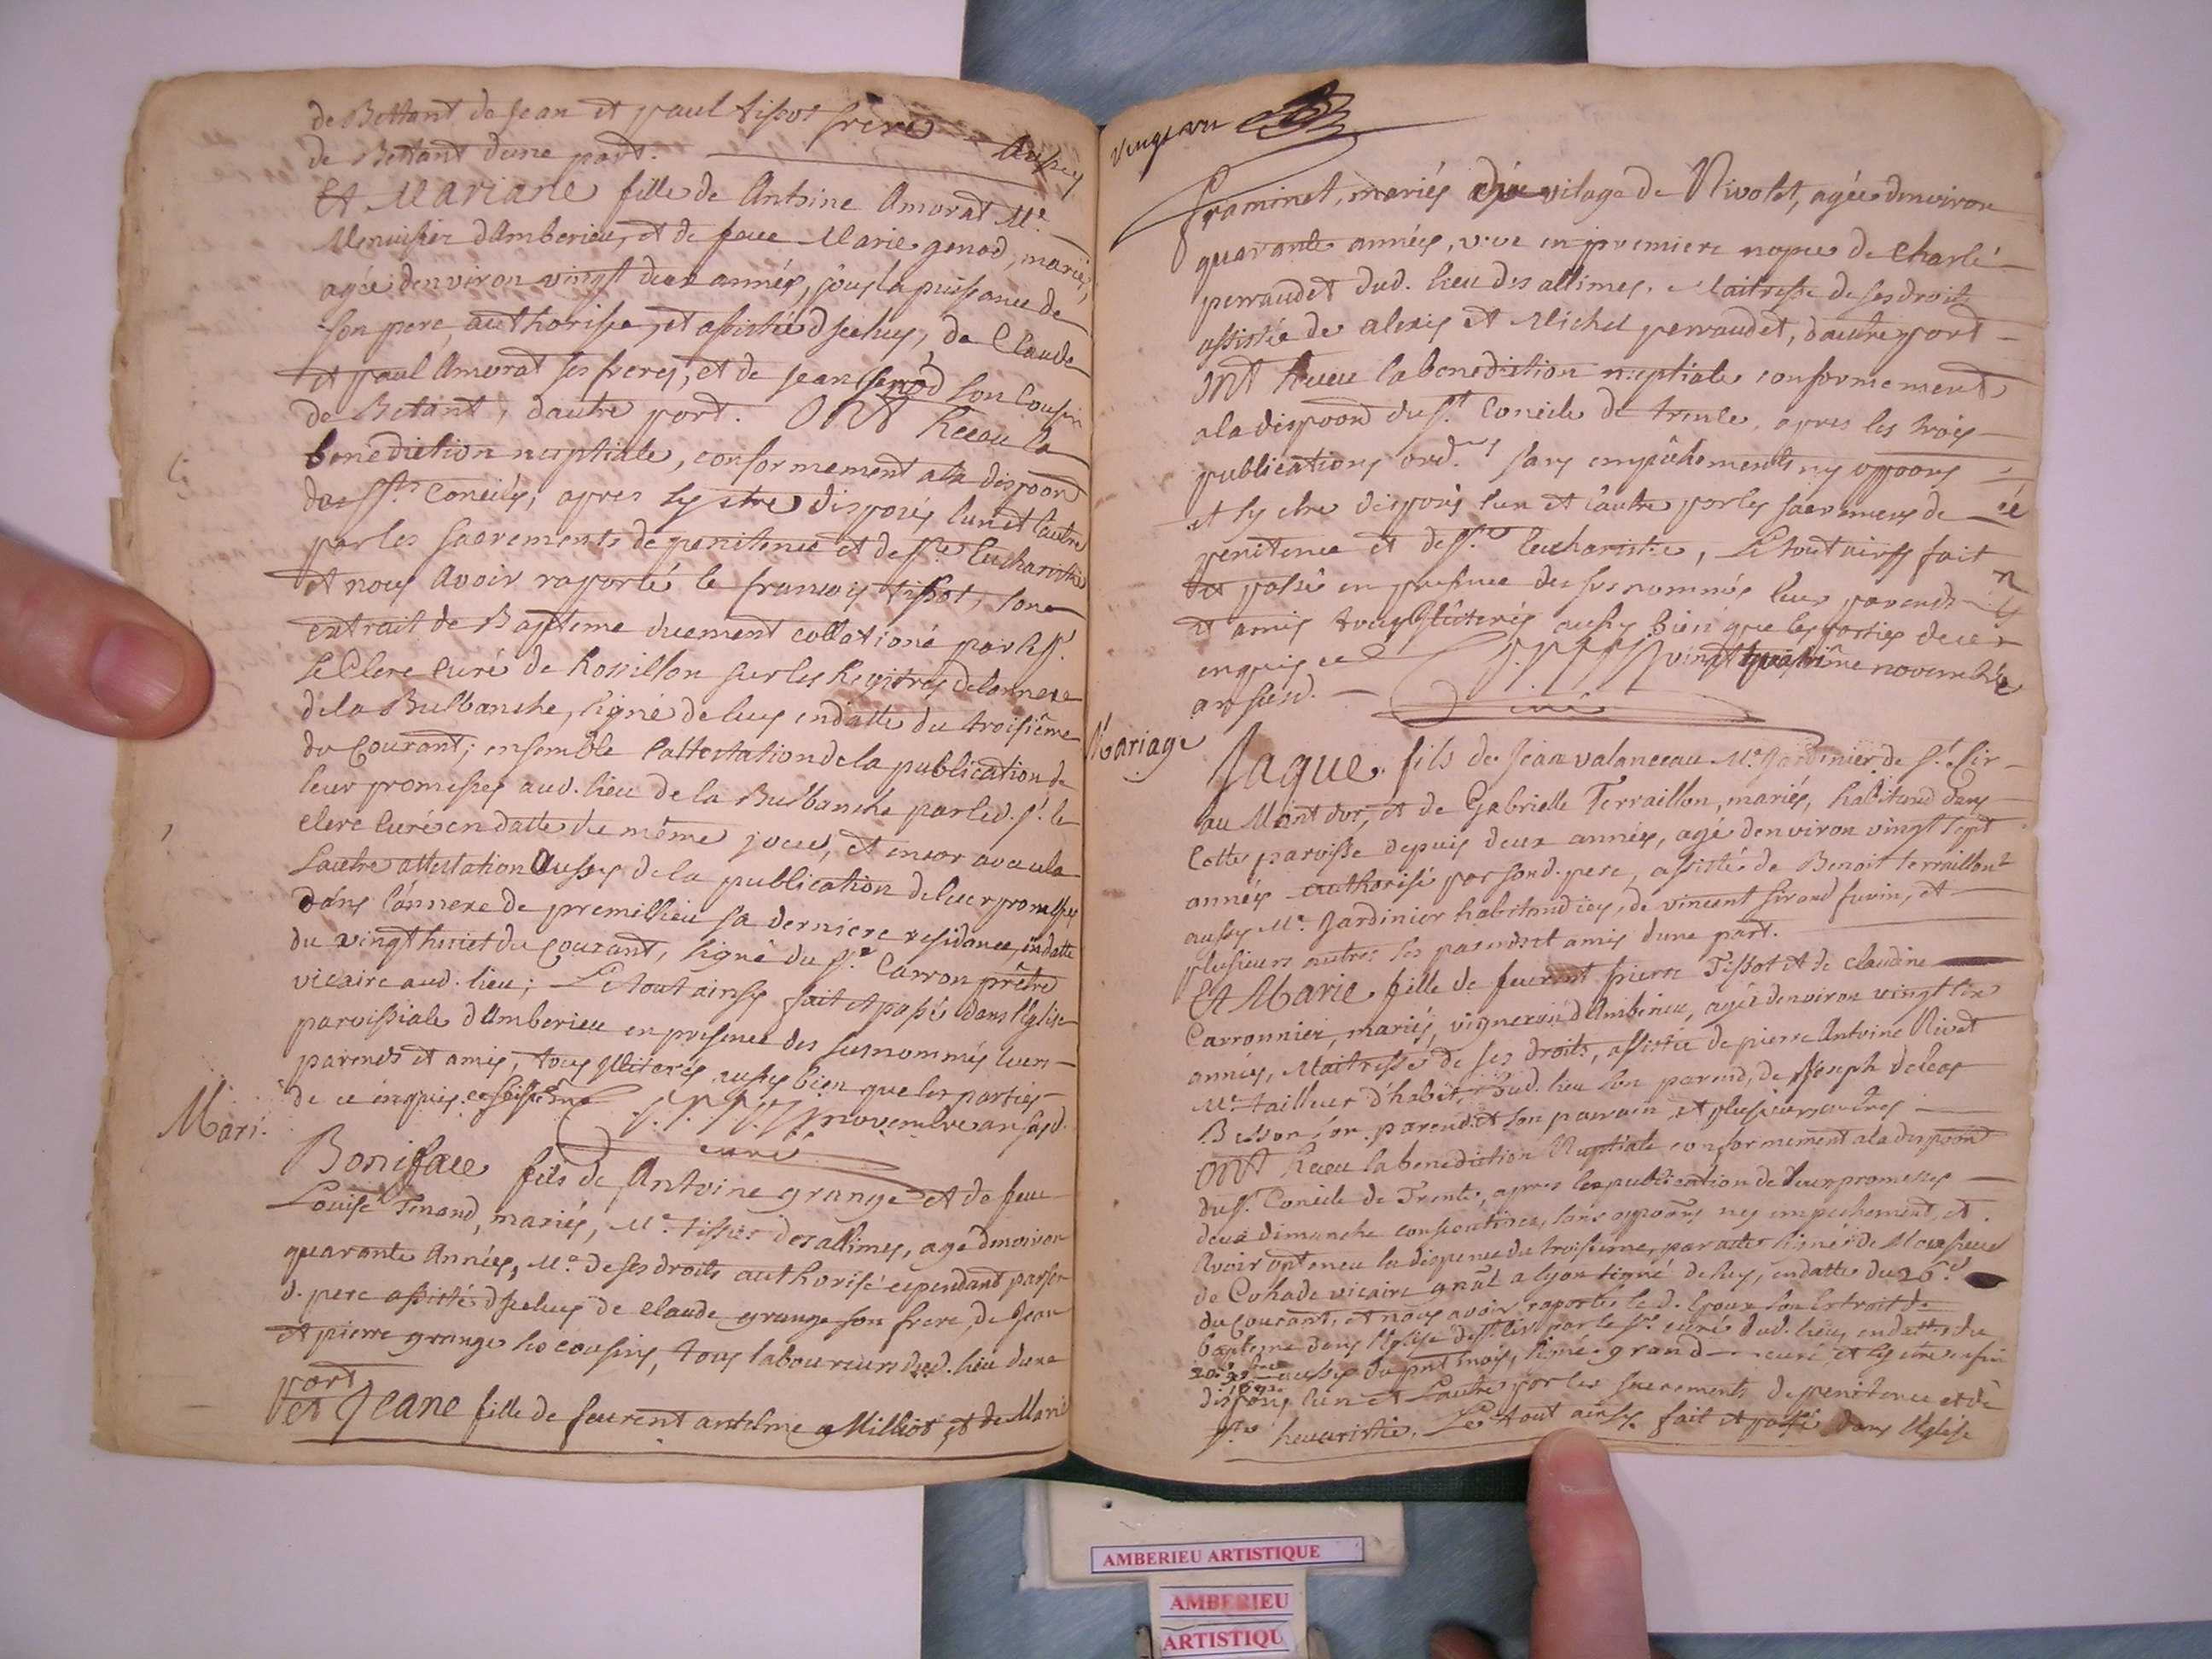 de Bettant de Jean et paul tissot freres Aussy
de Bettant dune part.
Et Mariane fille de Antoine Amorat Me
Menuisier dAmberieu, et de feue Marie genod, mariés,
agée denviron vingt deux années, sous la puissance de
son pere, authorisee, et assistée diceluy, de Claude
et paul Amorat ses freres, et de jean Genod son Cousin
de Betant, dautre part. ONT Receu la
benediction nuptiale, conformement ala dispoon
des Sts Conciles, apres sy etre disposés lun et lautre
par les sacrements de penitence et de Ste Eucharistie
et nous avoir raporté le françois tissot, son
extrait de Bapteme duement collationé par le Sr
Le Clerc curé de Rossillon sur les Registres delannexe
de la Burbanche, signé de luy endatte du troisiême
du Courant; ensemble lattestation de la publication de
leur promesses aud. lieu de la Burbanche par led. Sr. le
clerc Curé en datte du même jour, et encor avec la
lautre attestation Aussy de la publication de leur promesses
dans l'annexe de premillieu sa derniere residance, endatte
du vingt huict du Courant, signé du Sr. Carron prêtre
vicaire aud. lieu; Le tout ainsy fait et passé dans leglise
paroissiale dAmberieu en presence des susnommés leurs
parends et amis, tous illiterés aussy bien que les parties
de ce enquis. ce novembre an susd.
curé
Mari.
Boniface fils de Antoine grange et de feue
Louise Tenand, mariés, Me. tissier des allimes, agé denviron
quarante Années, Me. de ses droits authorisé cependant par son
d. pere assisté diceluy de claude grange son frere, de Jean
et pierre grange ses cousins, tous laboureurs dud. lieu dune
part,
et Jeane fille de feurent antelme Milliot, et de Marie
Vingt un
framinet, mariés du vilage de Nivolet, agée denviron
quarante années, vve en premiere nopce de Charle
perraudet dud. lieu des allimes. Maitresse de ses droits
assistée de alexis et Michel perraudet, dautre part
ONT Receu la benediction nuptiale conformement
ala dispoon du St. Concile de trente, apres les trois
publications ord.res sans empêchements ny oppoons
et sy etre disposés lun et lautre par les sacremens de
penitence et de Ste Eucharistie, Le tout ainsy fait
et passé en presence des susnommés leur parends
et amis tous illiterés aussy bien que les parties de ce
enquis ce vingt quatriême novembre
an susd.
curé
Mariage
Jaque fils de Jean valanceau Me. Jardinier de St. Cir
au Mont dor, et de Gabrielle Terraillon, mariés, habitand dans
Cette paroisse depuis deux années, agé denviron vingt sept
années authorisé par sond. pere, assistés de Benoit terraillon
aussy Me. Jardinier habitand icy, de vincent Sirand furin, et
plusieurs autres ses parends et amis dune part.
Et Marie fille de feurent pierre Tissot et de claudine
Carronnier, mariés, vigneron dAmberieu, agée denviron vingt six
années, Maitresse de ses droits, assistée de pierre Antoine Rivet
Me. tailleur d'habit, dud. lieu son parend, de Joseph
Besson son parend et son parain et plusieurs autres
ONT Receu la benediction Nuptiale conformement ala dispoon
du St. Concile de Trente, apres les publication de leur promesses
deux dimanche consecutives, sans oppoons ny empechement, et
Avoir obteneu la dispence du troisieme, par acte signé de Monsieur
de Cohade vicaire gnâl a lyon signé de luy, endatte du 26e
du Courant, et nous avoir raportés le d. Epoux son Extrait de
bapteme dans l'Eglise de St. Cir par le Sr. curé dud. lieu, endatte du
20e aussy du pnt mois, signé grand curé et sy etre enfin
disposés lun et lautre par les sacrements de penitence et de
Ste heucaristie. Le tout ainsy fait et passé dans leglise
AMBERIEU ARTISTIQUE
AMBERIEU
ARTISTIQU